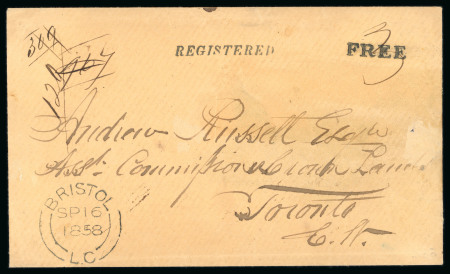 REGISTERED
FREE
3
309
Andrew Russell Esqre
Asst Commissioner Crown Lands
Toronto
C.W.
BRISTOL
SP 16
1858
L.C